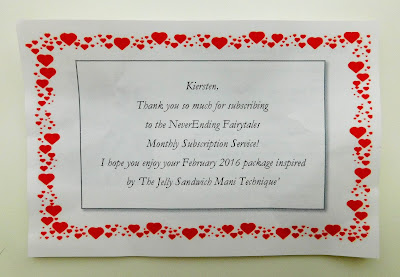 Kiersten,
Thank you so much for subscribing
to the NeverEnding Fairytales
Monthly Subscription Service!
I hope you enjoy your February 2016 package inspired
by 'The Jelly Sandwich Mani Technique'